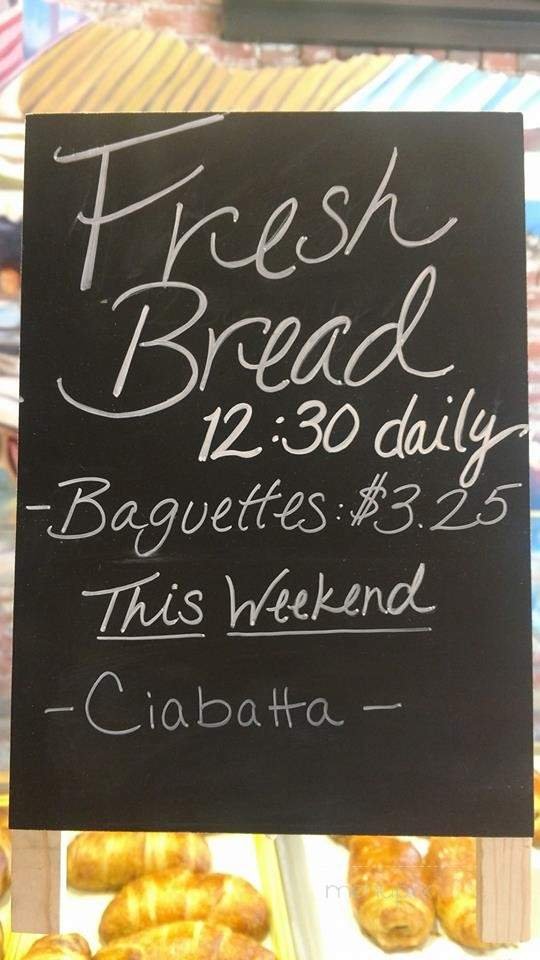 Fresh
Bread
12:30 daily
-Baguettes: $3.25
This Weekend
- Ciabatta -